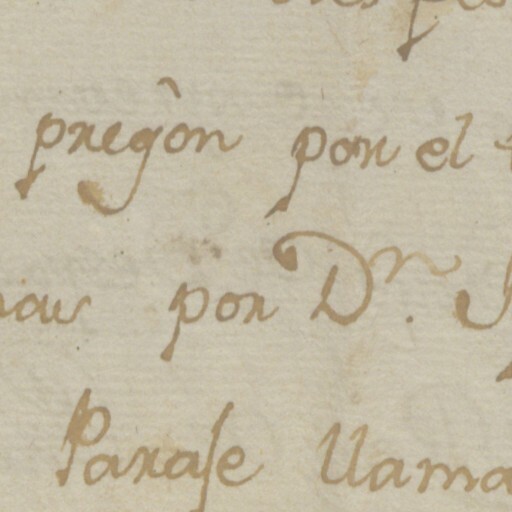 pregòn por el
por Dn.
Parase llama